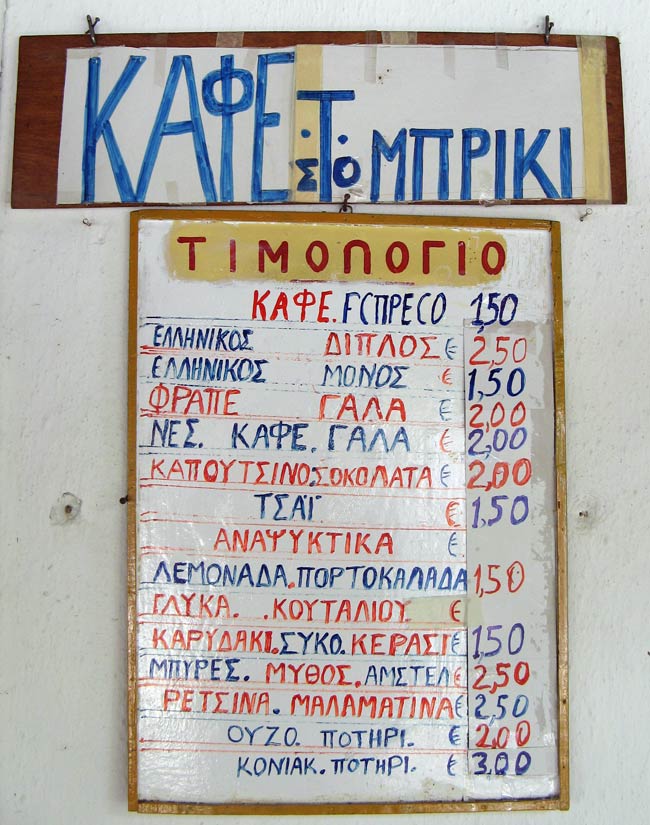 ΚΑΦΕ ΣΤΟ ΜΠΡΙΚΙ
ΤΙΜΟΠΟΓΙΟ
ΚΑΦΕ.FCΠΡΕCΟ 1,50
ΕΛΛΗΝΙΚΟΣ ΔΙΠΛΟΣ € 2,50
ΕΛΛΗΝΙΚΟΣ ΜΟΝΟΣ € 1,50
ΦΡΑΠΕ ΓΑΛΑ € 2,00
ΝΕΣ. ΚΑΦΕ. ΓΑΛΑ € 2,00
ΚΑΠΟΥΤΣΙΝΟ:ΣΟΚΟΛΑΤΑ € 2,00
ΤΣΑΪ € 1,50
ΑΝΑΨΥΚΤΙΚΑ €
ΛΕΜΟΝΑΔΑ.ΠΟΡΤΟΚΑΛΑΔΑ 1,50
ΓΛΥΚΑ. .ΚΟΥΤΑΛΙΟΥ €
ΚΑΡΥΔΑΚΙ.ΣΥΚΟ.ΚΕΡΑΣΙ € 1,50
ΜΠΥΡΕΣ. ΜΥΘΟΣ.ΑΜΣΤΕΛ € 2,50
ΡΕΤΣΙΝΑ. ΜΑΛΑΜΑΤΙΝΑ € 2,50
ΟΥΖΟ. ΠΟΤΗΡΙ. € 2,00
ΚΟΝΙΑΚ. ΠΟΤΗΡΙ. € 3,00